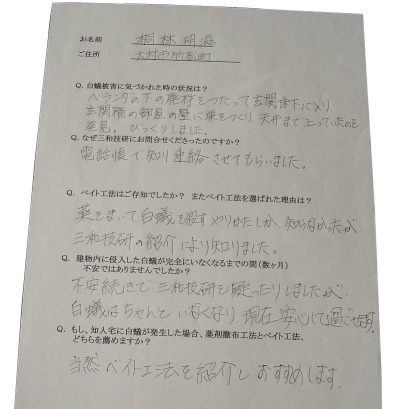 お名前 桐林明滋
ご住所 大村市竹松町
Q. 白蟻被害に気づかれた時の状況は？
ベランダの下の廃材をつたって玄関床下に入り
玄関横の部屋の畳に巣をつくり、天井まで上っていたのを
発見。びっくりしました。
Q. なぜ三和技研にお問合せくださったのですか？
電話帳で知り連絡させてもらいました。
Q. ベイト工法はご存知でしたか？ またベイト工法を選ばれた理由は？
薬をまいて白蟻を殺すやりかたしか、知らなかったが、
三和技研の紹介により知りました。
Q. 建物内に侵入した白蟻が完全にいなくなるまでの間（数ヶ月）
不安ではありませんでしたか？
不安続きで三和技研を疑ったりしましたが、
白蟻はちゃんといなくなり、現在安心して過ごせます。
Q. もし、知人宅に白蟻が発生した場合、薬剤撒布工法とベイト工法、
どちらを薦めますか？
当然ベイト工法を紹介しおすすめします。